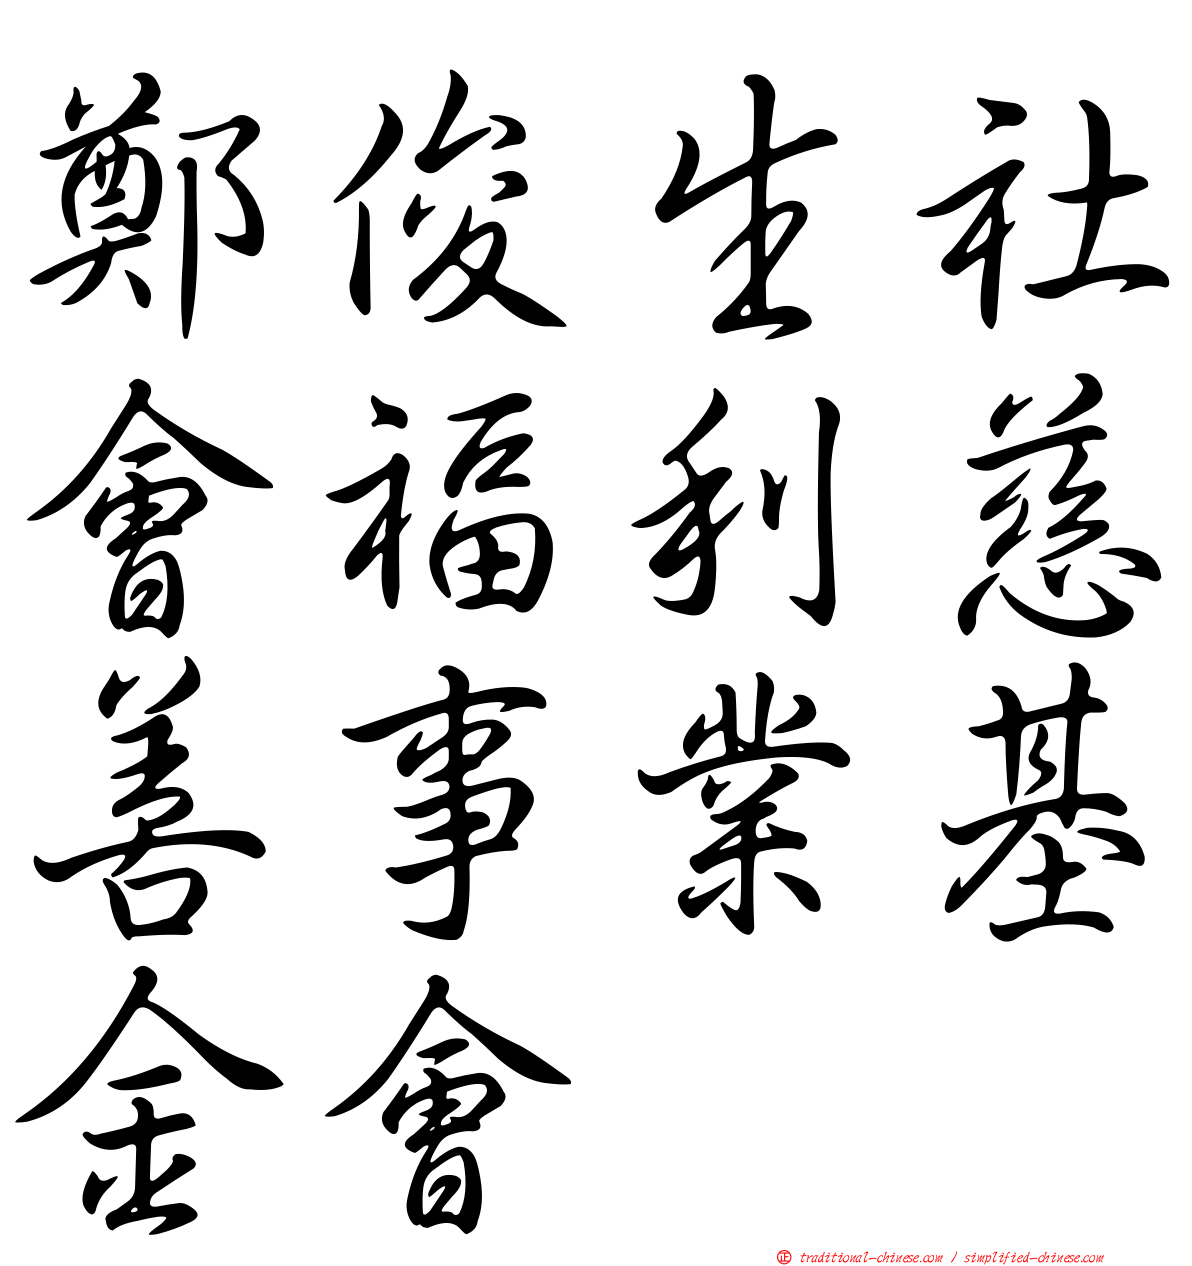 鄭俊生社
會福利慈
善事業基
金會
正 traditional-chinese.com / simplified-chinese.com